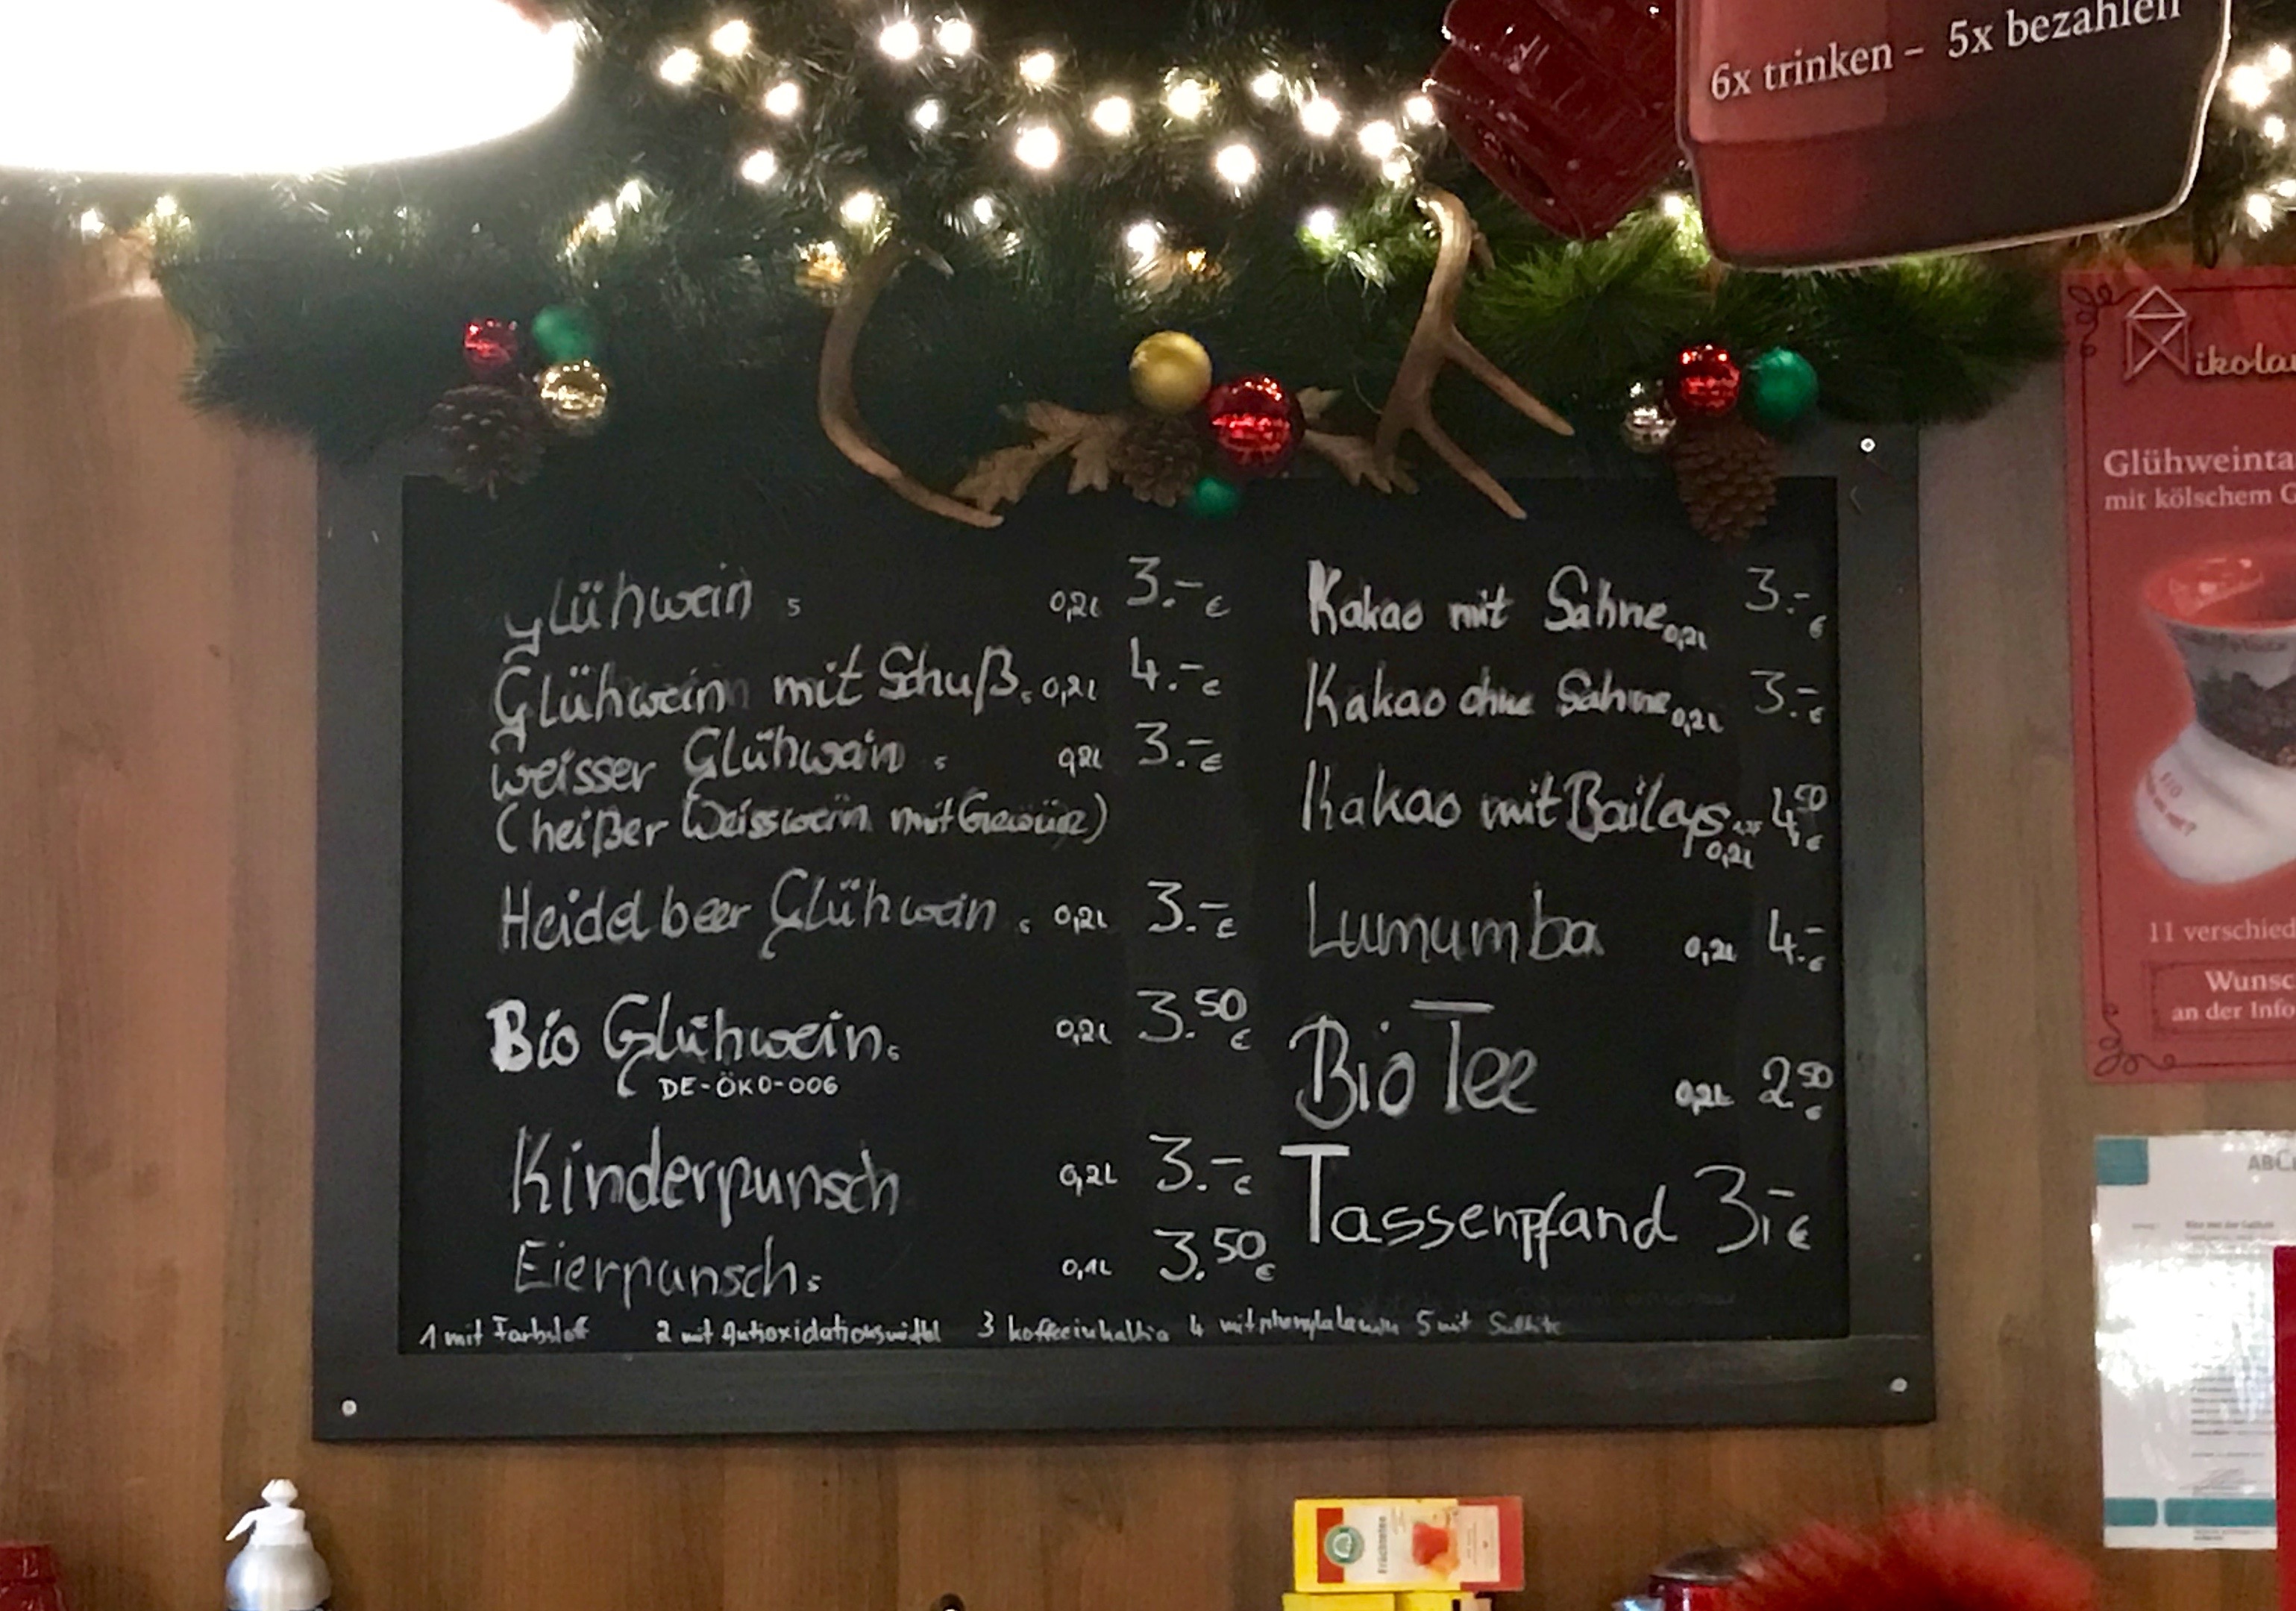 6x trinken – 5x bezahlen
Glühwein 5 0,2l 3.-€
Glühwein mit Schuß 5 0,2l 4.-€
weisser Glühwein 5 0,2l 3.-€
(heißer Weisswein mit Gewürz)
Heidelbeer Glühwein 5 0,2l 3.-€
Bio Glühwein 5 0,2l 3.50€
DE-ÖKO-006
Kinderpunsch 0,2L 3.-€
Eierpunsch 5 0,1L 3.50€
Kakao mit Sahne 0,2l 3.-€
Kakao ohne Sahne 0,2l 3.-€
Kakao mit Baileys 4.50€
0,2l
Lumumba 0,2l 4.-€
Bio Tee 0,2l 2.50€
Tassenpfand 3,-€
1 mit Farbstoff 2 mit Antioxidationsmittel 3 koffeinhaltig 4 mit phenylalanin 5 mit Sulfite
ikola
Glühweinta
mit kölschem G
11 verschied
Wunsc
an der Info
Früchtetee